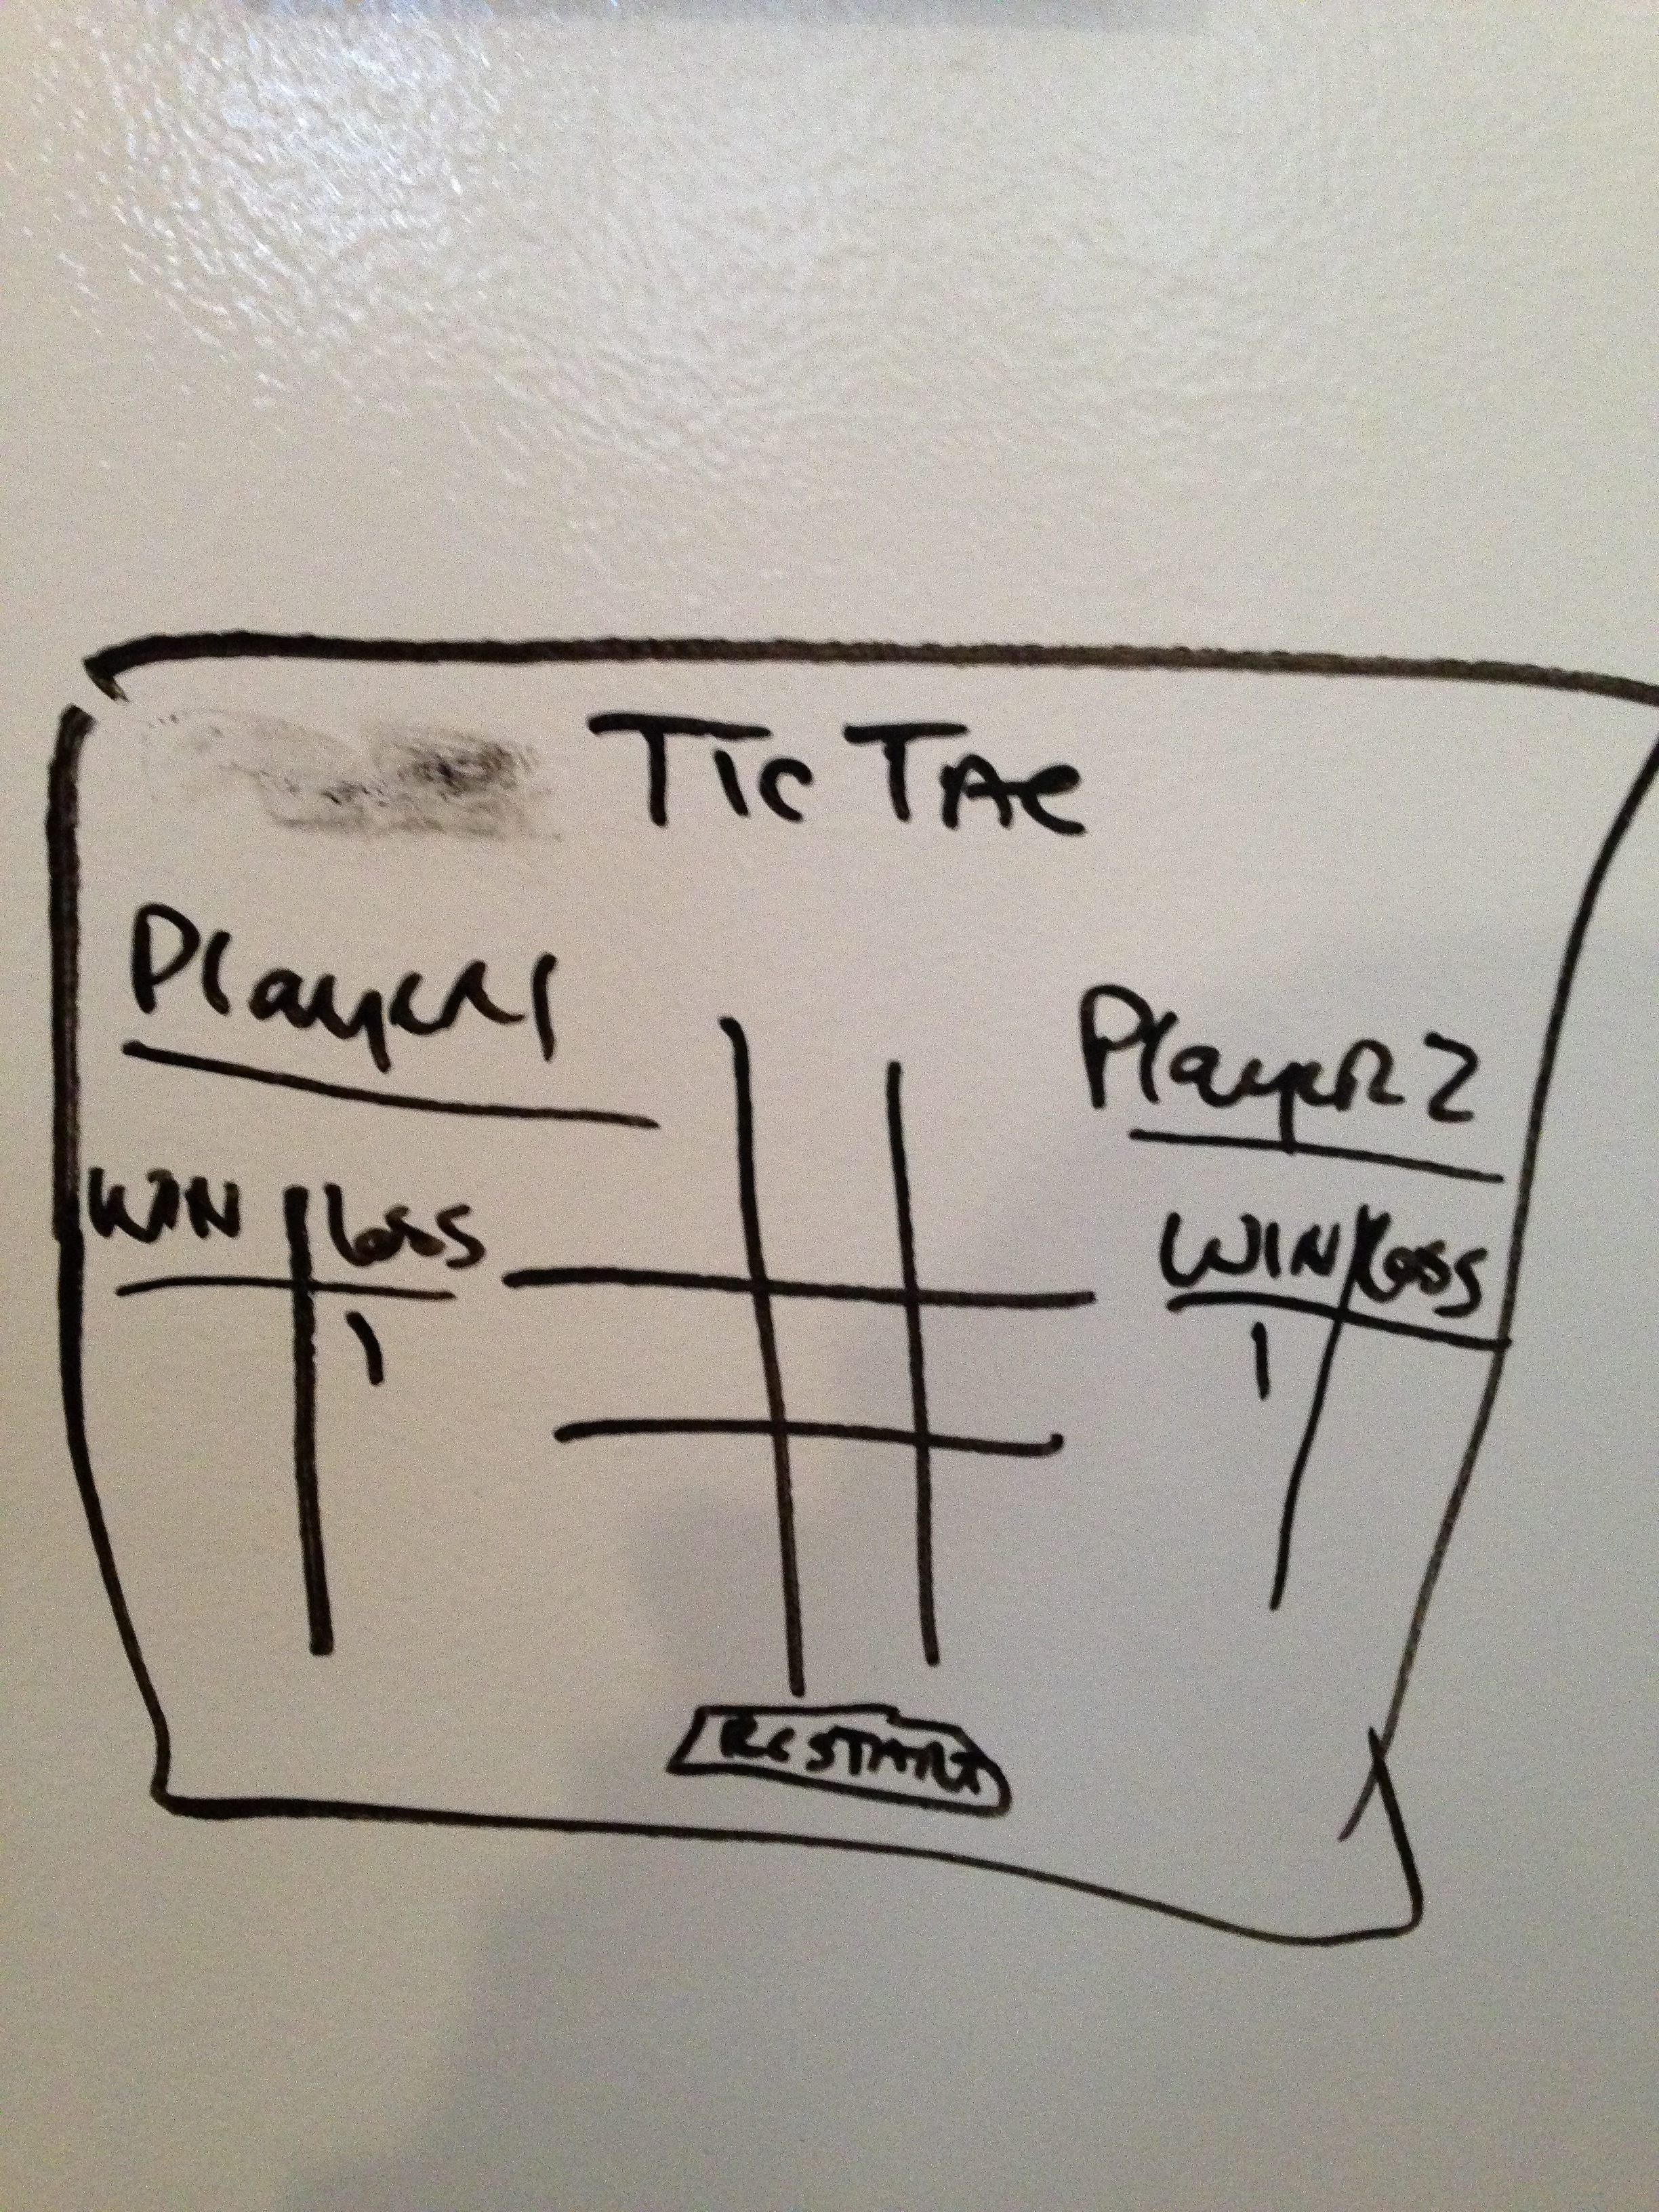 TIC TAC
Player 1
WIN loss
1
Player 2
WIN loss
1
RESTART